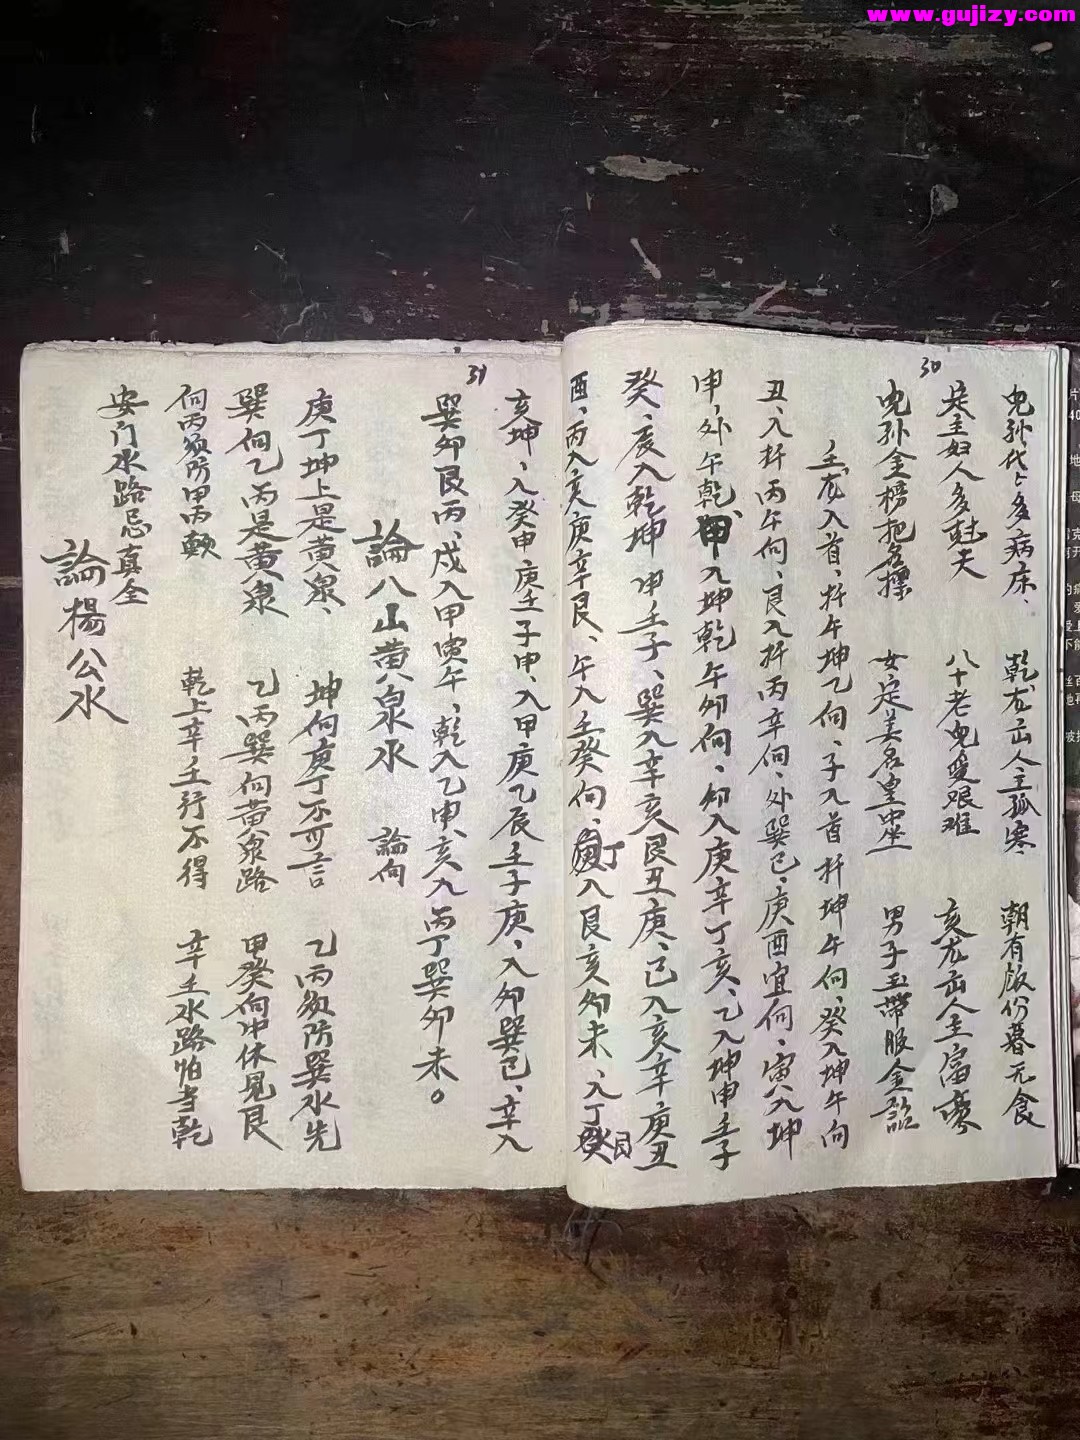 www.gujizy.com
30
多病床、 乾龙出人主孤寒 朝有版份暮元食
主妇人多 夫 八十老 受艰难 亥龙出人主富豪
孙金榜把名標 女定美名皇 男子玉带服金
壬龙入首、扦午坤乙向、子入首扦坤午向、癸入坤午向
丑、入扦丙午向、艮入扦丙辛向、外巽巳、庚酉宜向、寅入坤
申、外午乾、甲入坤乾午卯向、卯入庚辛丁亥、乙入坤申壬子
癸、辰入乾坤申壬子、巽入辛亥艮丑庚、巳入亥辛庚丑
酉、丙入亥庚辛艮、午入壬癸向、丁入艮亥卯未、入丁癸艮
31
亥坤、入癸申庚壬子申、入甲庚乙辰壬子庚、入卯巽巳、辛入
巽卯艮丙、戌入甲寅午、乾入乙申、亥入丙丁巽卯未。
論八山黄泉水 論向
庚丁坤上是黄泉、 坤向庚丁不可言 乙丙须防巽水先
巽向乙丙是黄泉 乙丙巽向黄泉路 甲癸向中休見艮
向丙须防甲丙 乾上辛壬行不得 辛壬水路怕当乾
安门水路忌真全
論楊公水